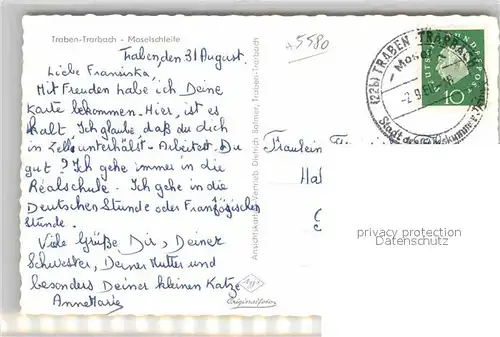 Traben-Trarbach - Moselschleife
+5580
Traben, den 31 August.
Liebe Franziska,
Mit Freuden habe ich Deine
Karte bekommen. Hier, ist es
kalt. Ich glaube daß du dich
in Zell unterhälst - Arbeitest Du
gut? Ich gehe immer in die
Realschule. Ich gehe in die
Deutschen Stunde oder Französischen
Stunde.
Viele Grüße Dir, Deiner
Schwester, Deiner Mutter und
besonders Deiner kleinen Katze
AnneMarie
Ansichtskarten-Vertrieb Dietrich Bollmer, Traben-Trarbach
Agfa
Originalfoto
(22b) TRABEN-TRARBACH
Mosel
-2.9.60
Stadt der
DEUTSCHE BUNDESPOST
10
Fräulein
privacy protection
Datenschutz